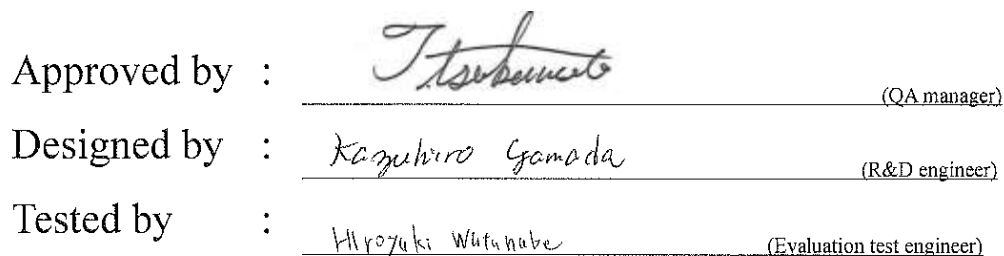 Approved by : T. Tsukamoto (QA manager)
Designed by : Kazuhiro Yamada (R&D engineer)
Tested by : Hiroyuki Watanabe (Evaluation test engineer)